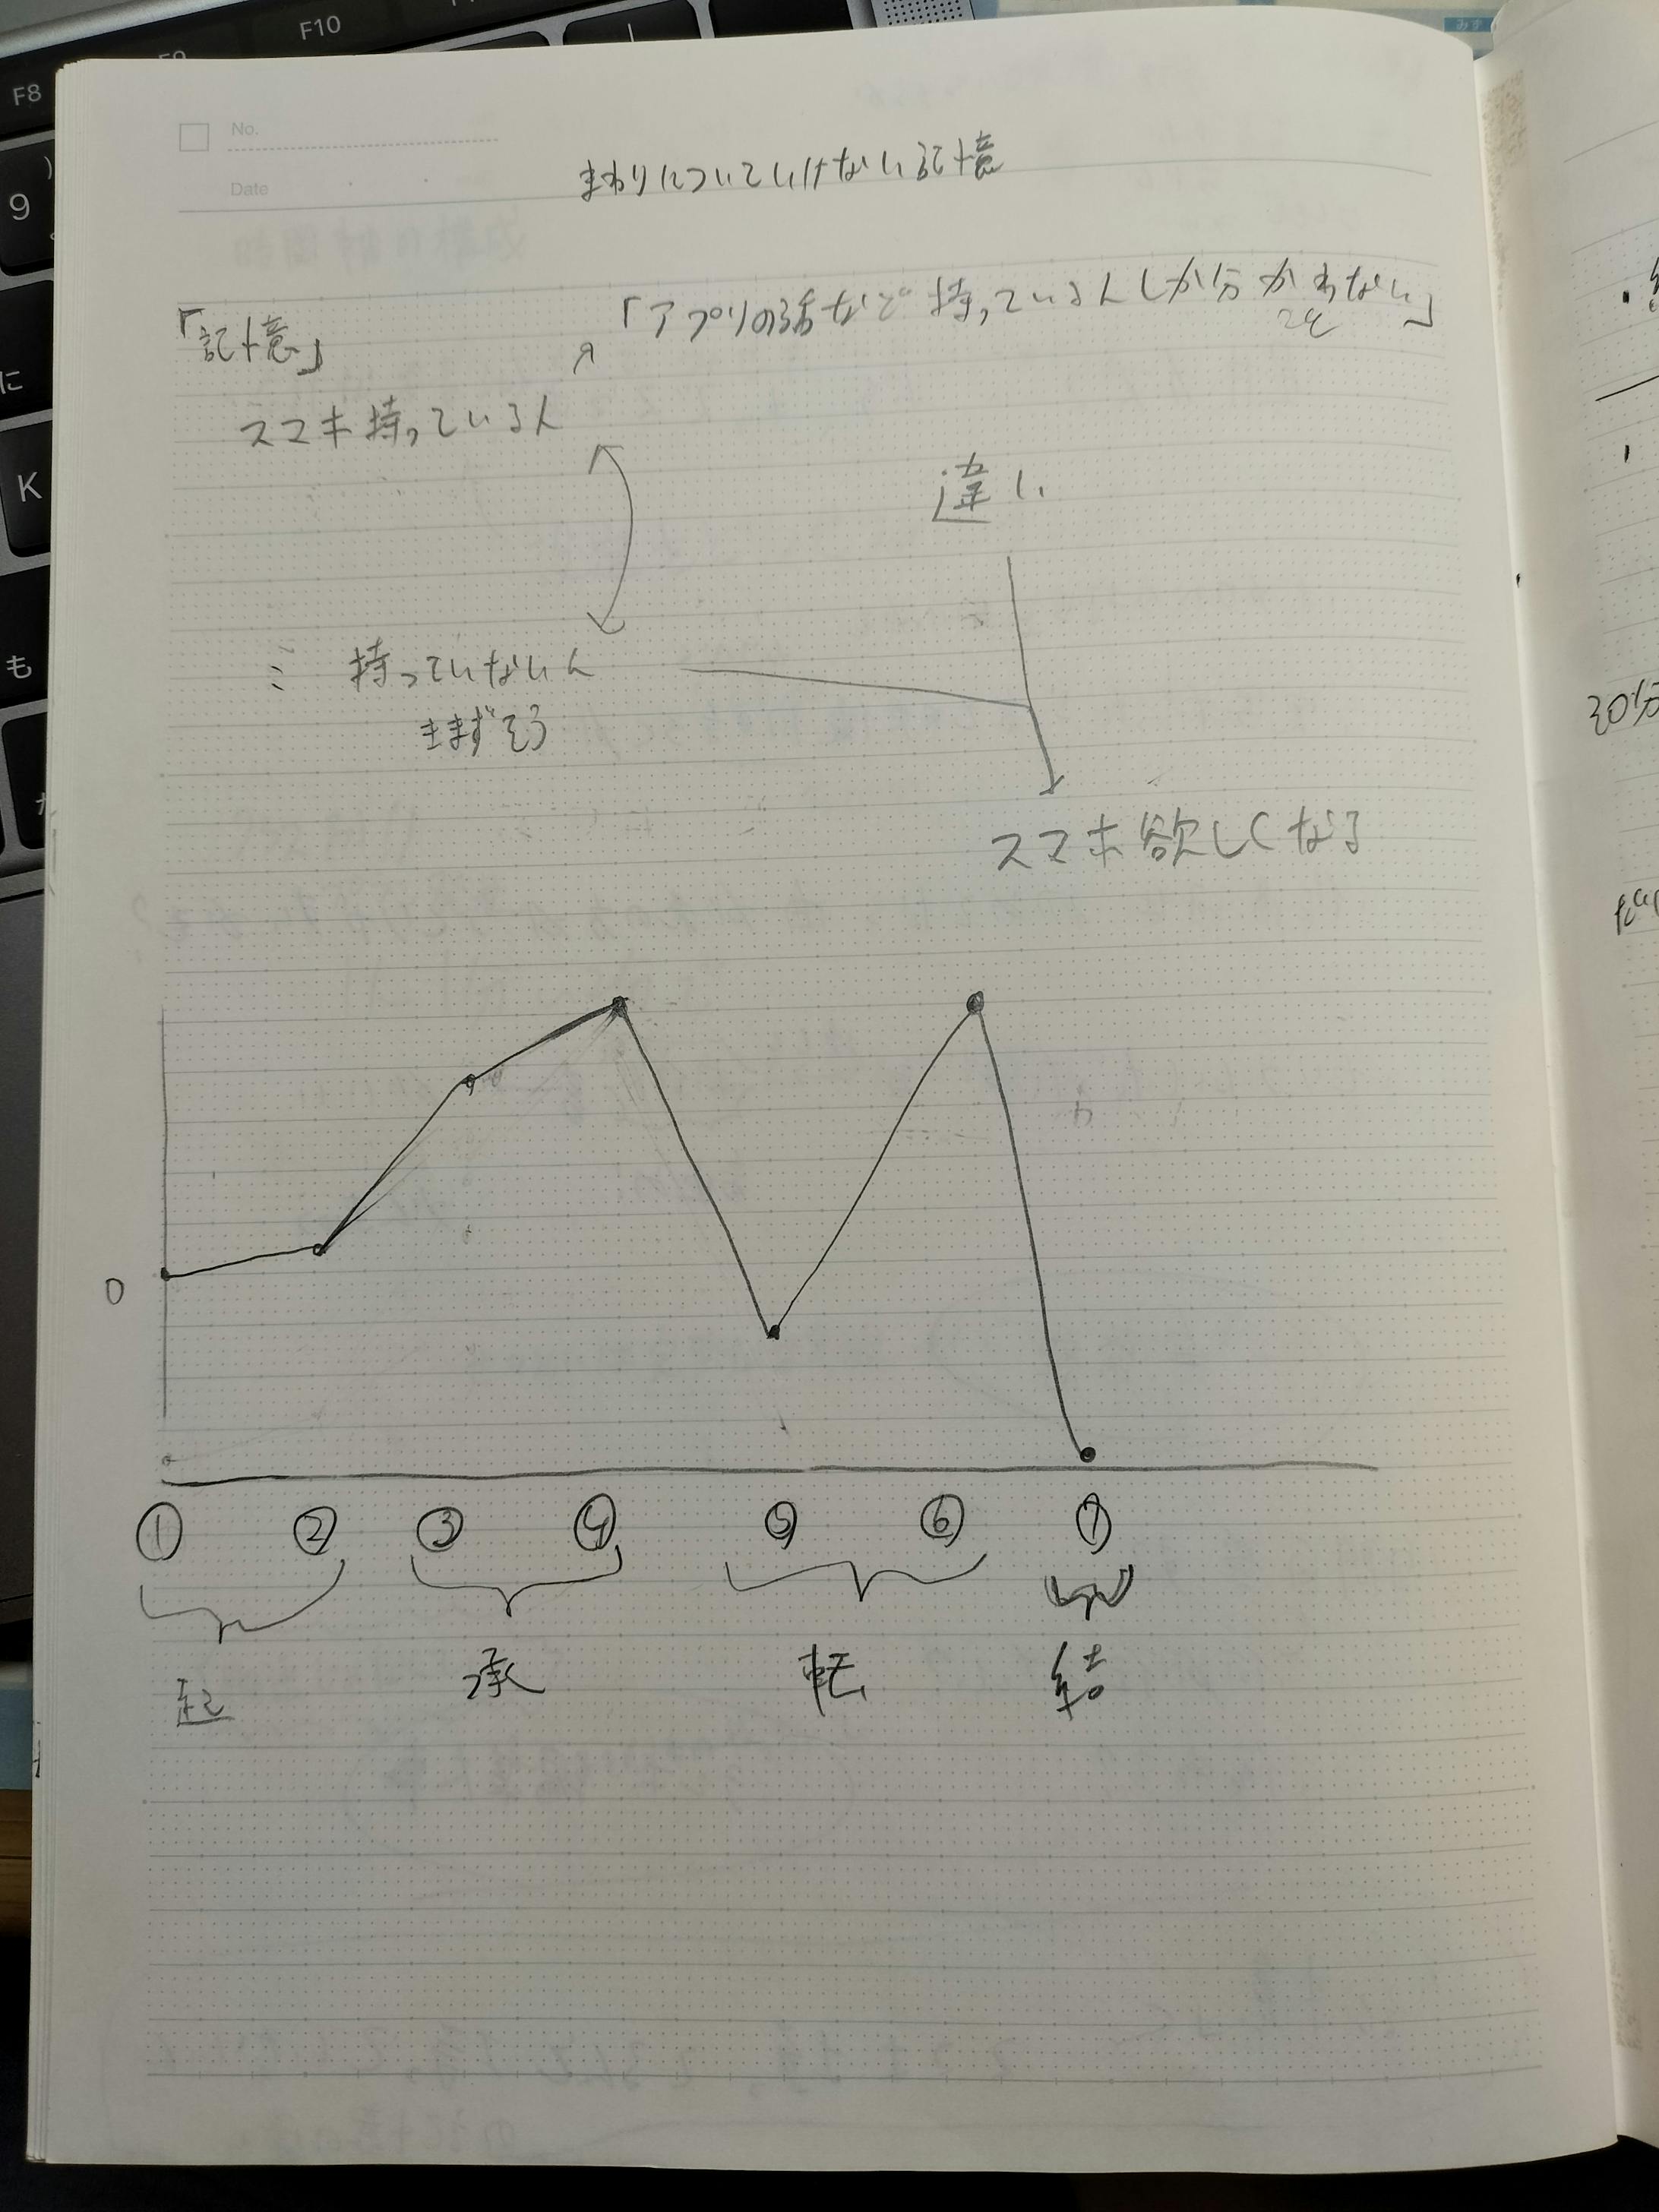 F10
F8
9
K
に
も
No.
Date
まわりについていけない記憶
「記憶」
「アプリの話など持っている人しか分かわない」
スマホ持っている人
違い
持っていない人
きまずそう
スマホ欲しくなる
0
① ② ③ ④ ⑤ ⑥ ⑦
起 承 転 結
30分